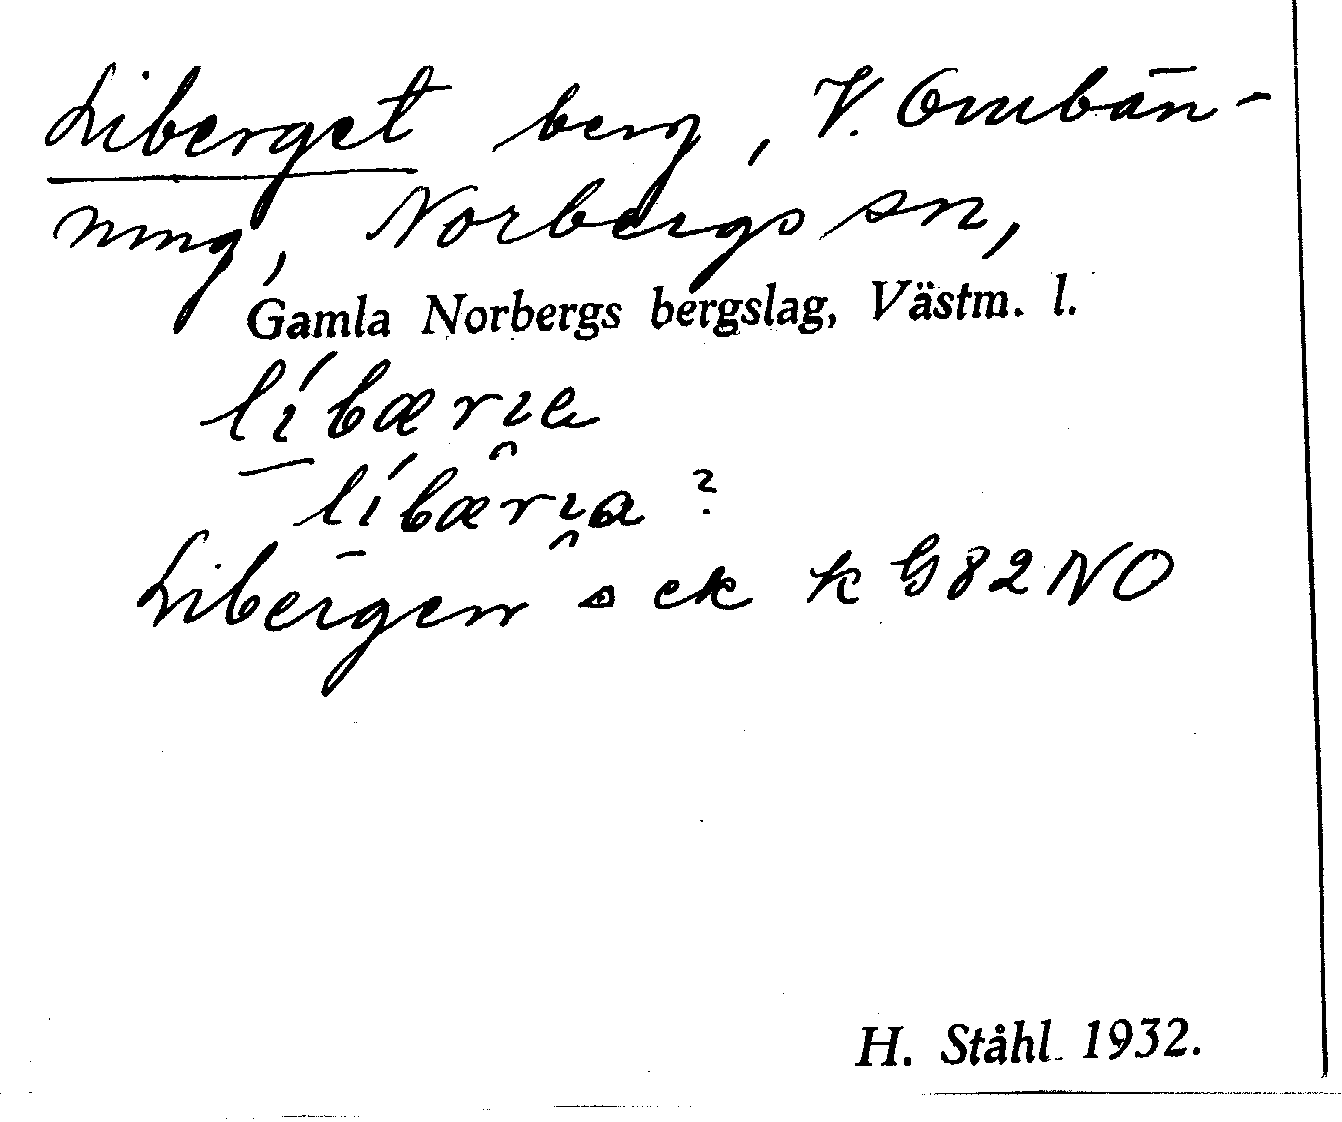 Liberget berg, V. Ombän-
ning, Norbergs sn,
Gamla Norbergs bergslag, Västm. l.
líbærɩe
líbærɩa ?
Libergen ek k G 82 NO
H. Ståhl 1932.